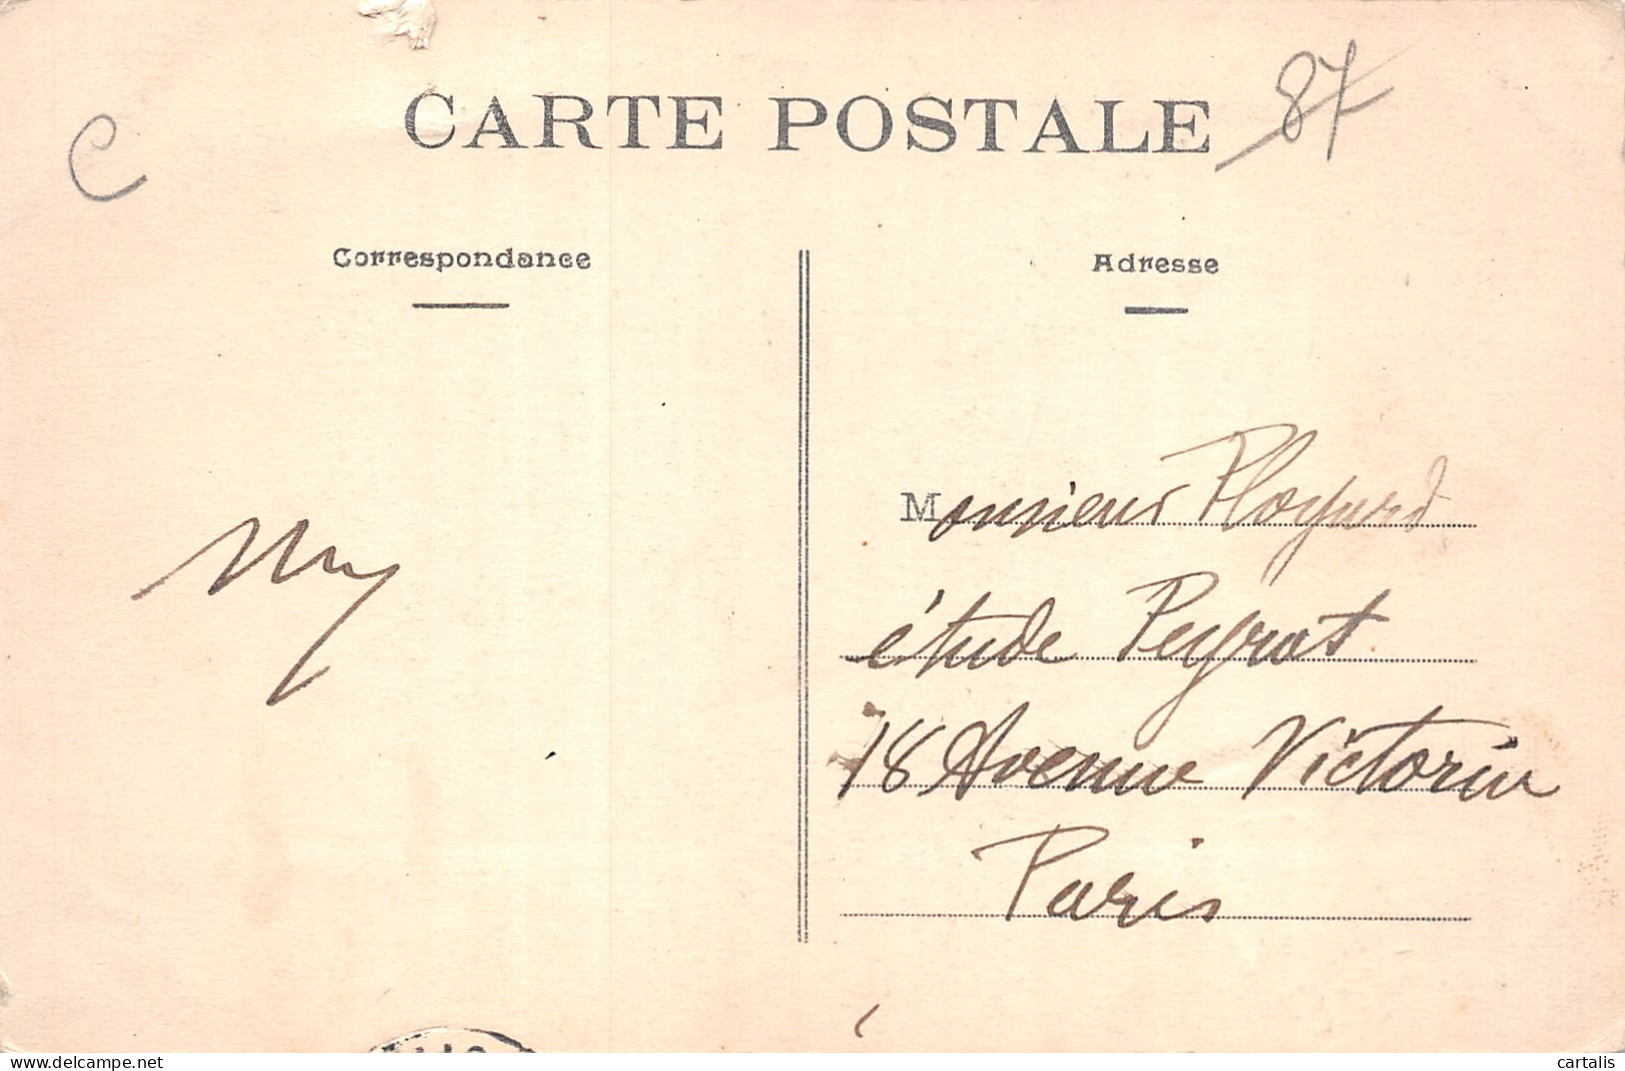 C
CARTE POSTALE
87
Correspondance
Adresse
Monsieur Ployard
étude Peyrot
18 Avenue Victoria
Paris
delcampe.net
cartalis